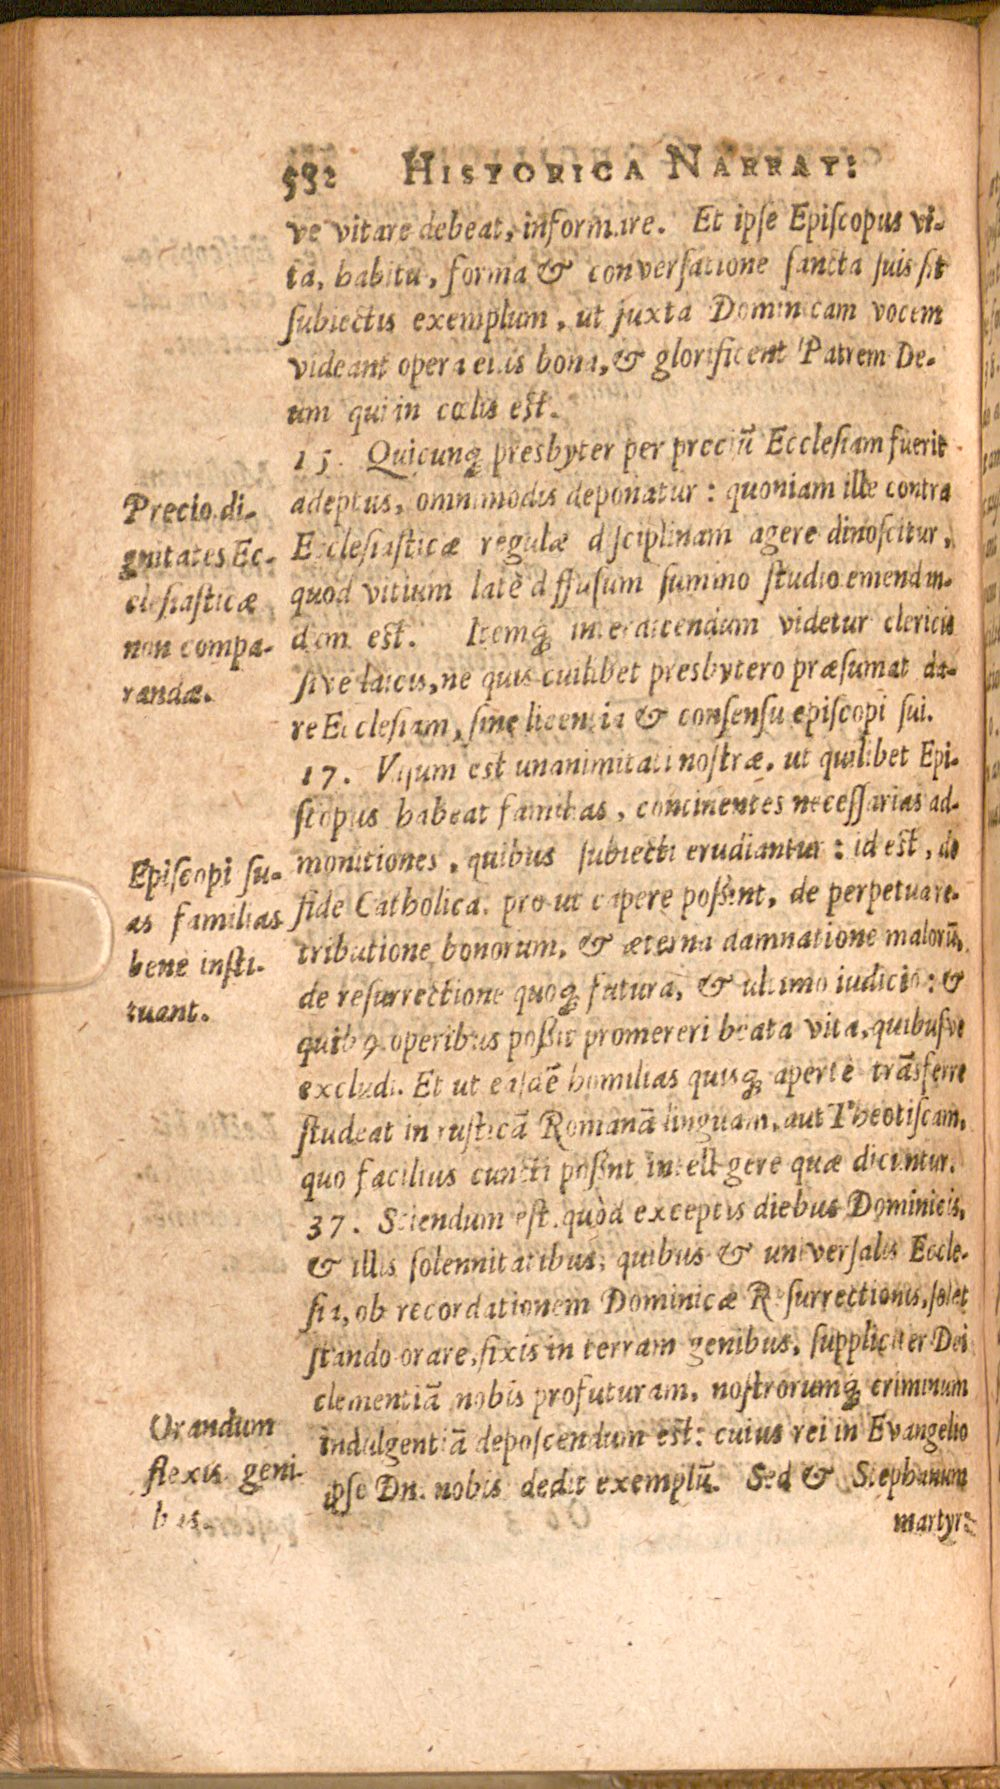 582 HISTORICA NARRAT:
ve vitare debeat, informare. Et ipse Episcopus vi-
ta, habitu, forma & conversatione sancta suis sit
subiectis exemplum, ut juxta Dominicam vocem
videant opera eius bona, & glorificent Patrem De-
um qui in cœlis est.
15. Quicunq; presbyter per preciũ Ecclesiam fuerit
adeptus, omnimodis deponatur: quoniam ille contra
Ecclesiasticæ regulæ disciplinam agere dinoscitur,
quod vitium late diffusum summo studio emendan-
dum est. Itemq; interdicendum videtur clericis
sive laicis, ne quis cuilibet presbytero præsumat da-
re Ecclesiam, sine licentia & consensu episcopi sui.
17. Visum est unanimitati nostræ, ut quilibet Epi-
scopus habeat familias, continentes necessarias ad-
monitiones, quibus subiecti erudiantur: id est, de
fide Catholica, pro ut capere possint, de perpetua re-
tributione bonorum, & æterna damnatione malorũ,
de resurrectione quoq; futura, & ultimo iudicio: &
quib9 operibus possit promereri beata vita, quibusve
excludi. Et ut easdẽ homilias quisq; aperte trãsferre
studeat in rusticã Romanã linguam, aut Theotiscam,
quo facilius cuncti possint intelligere quæ dicuntur.
37. Sciendum est, quòd exceptis diebus Dominicis,
& illis solennitatibus, quibus & universalis Eccle-
sia, ob recordationem Dominicæ Resurrectionis, solet
stando orare, fixis in terram genibus, suppliciter Dei
clementiã nobis profuturam, nostrorumq; criminum
indulgentiã deposcendum est: cuius rei in Evangelio
ipse Dn. nobis dedit exemplũ. Sed & Stephanum
martyr-
Precio di-
gnitates Ec-
clesiasticæ
non compa-
randæ.
Episcopi su-
as familias
bene insti-
tuant.
Orandum
flexis geni-
bus.